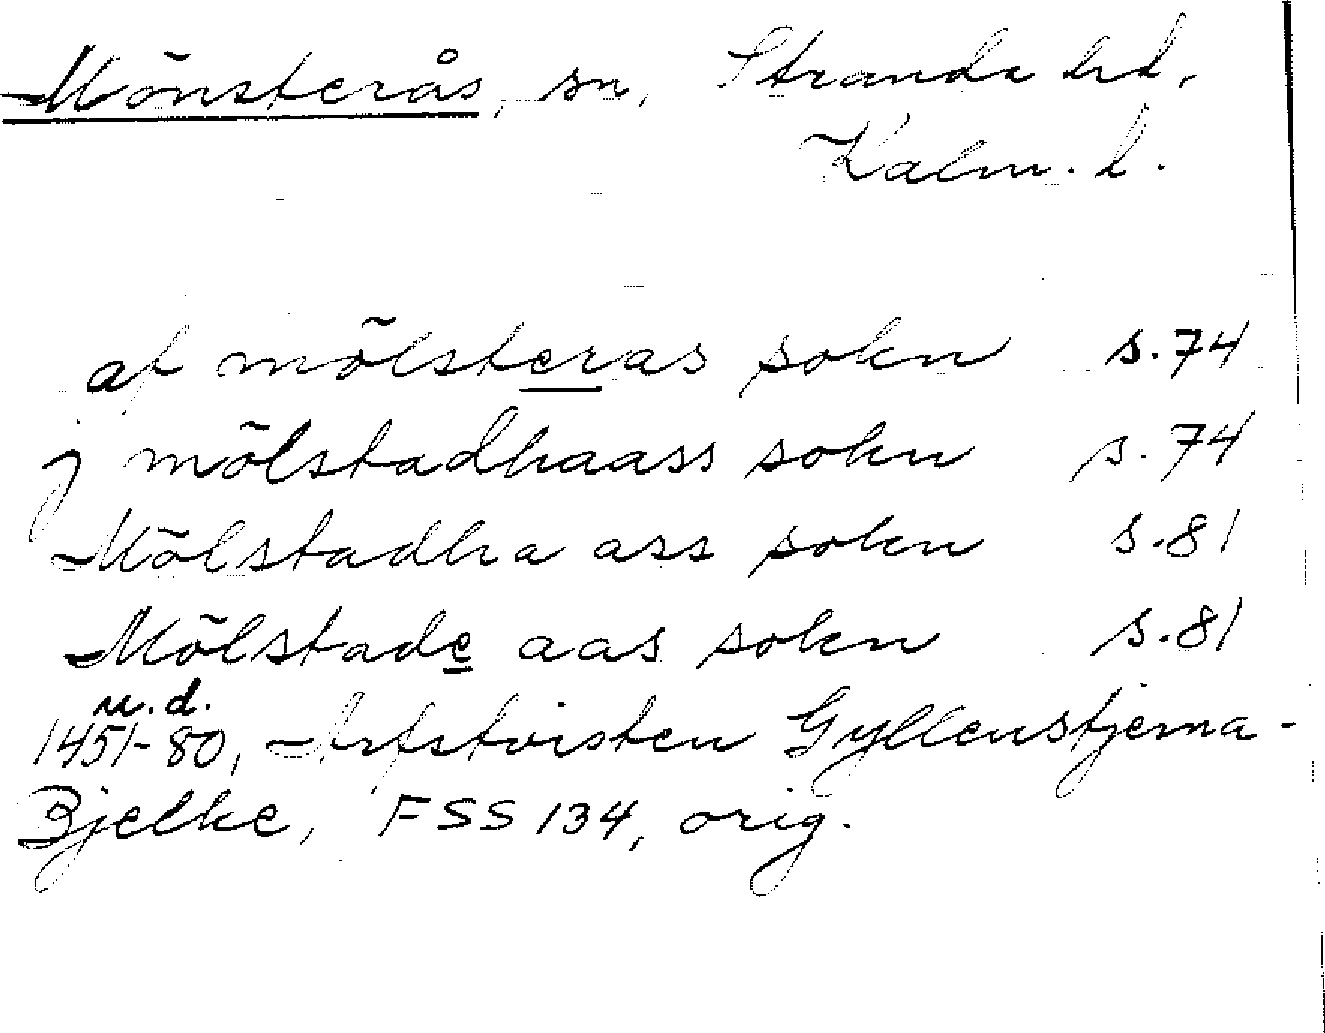 Mönsterås, sn, Stranda hd,
Kalm. l.
af mölsteras sokn s. 74
j mölstadhaass sokn s. 74
Mölstadha ass sokn s. 81
Mölstade aas sokn s. 81
u. d.
1451-80, Arfstvisten Gyllenstjerna-
Bjelke, FSS 134, orig.